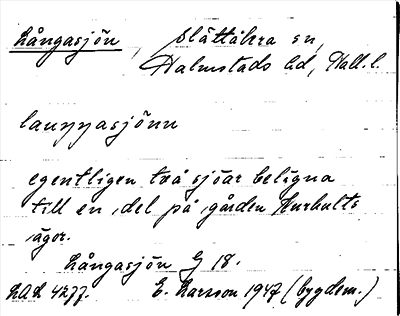 Långasjön, Slättåkra sn,
Halmstads hd, Hall. l.
lauŋŋasjönn
egentligen två sjöar belägna
till en del på gården Hurhults
ägor.
Långasjön G 18.
LAL 4277. E. Larsson 1947 (bygdem.)